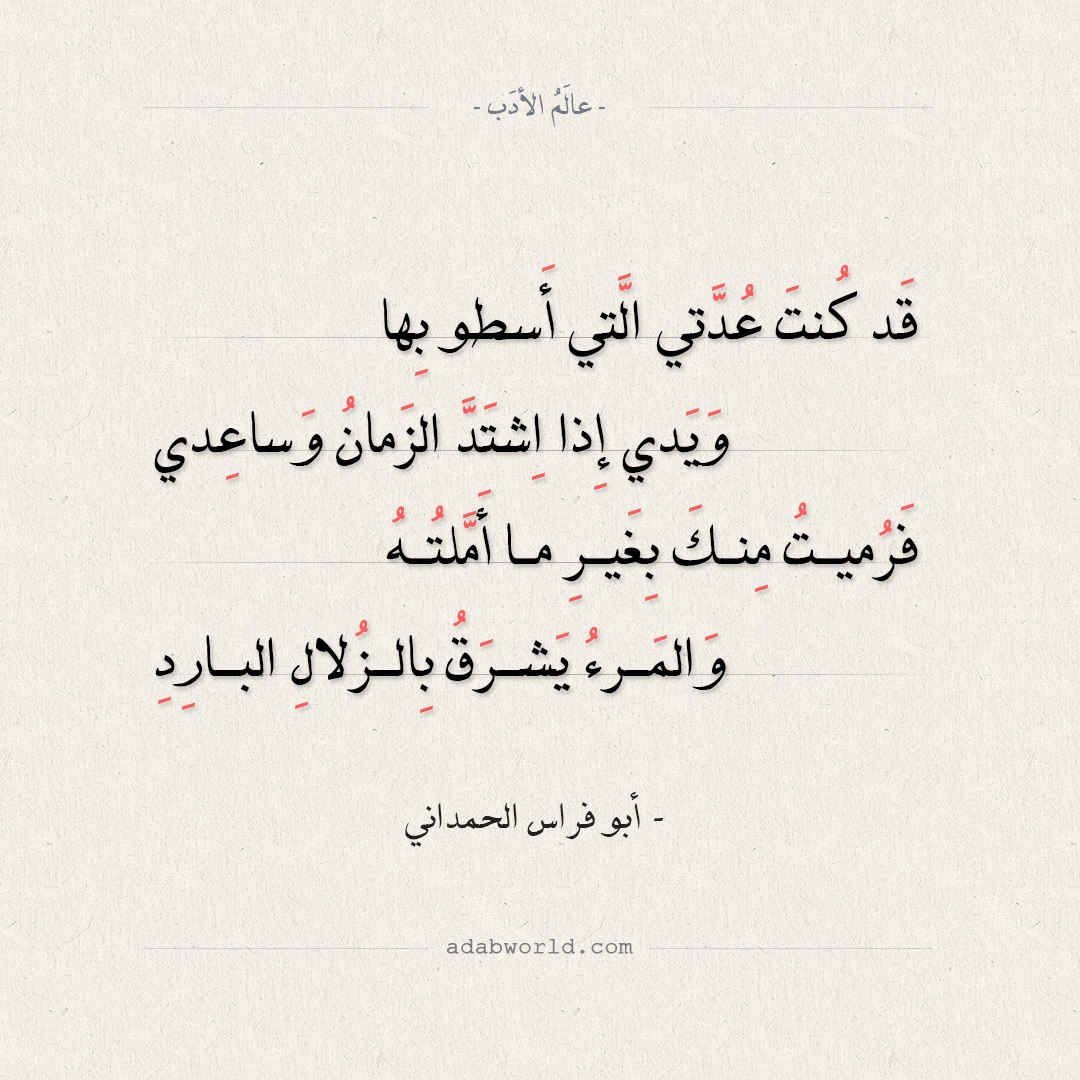 - عالَمُ الأدَب -
قَد كُنتَ عُدَّتي الَّتي أَسطو بِها
وَيَدي إِذا اِشتَدَّ الزَمانُ وَساعِدي
فَرُميـتُ مِنـكَ بِغَيـرِ مـا أَمَّلتُـهُ
وَالمَـرءُ يَشـرَقُ بِالـزُلالِ البـارِدِ
- أبو فراس الحمداني
adabworld.com